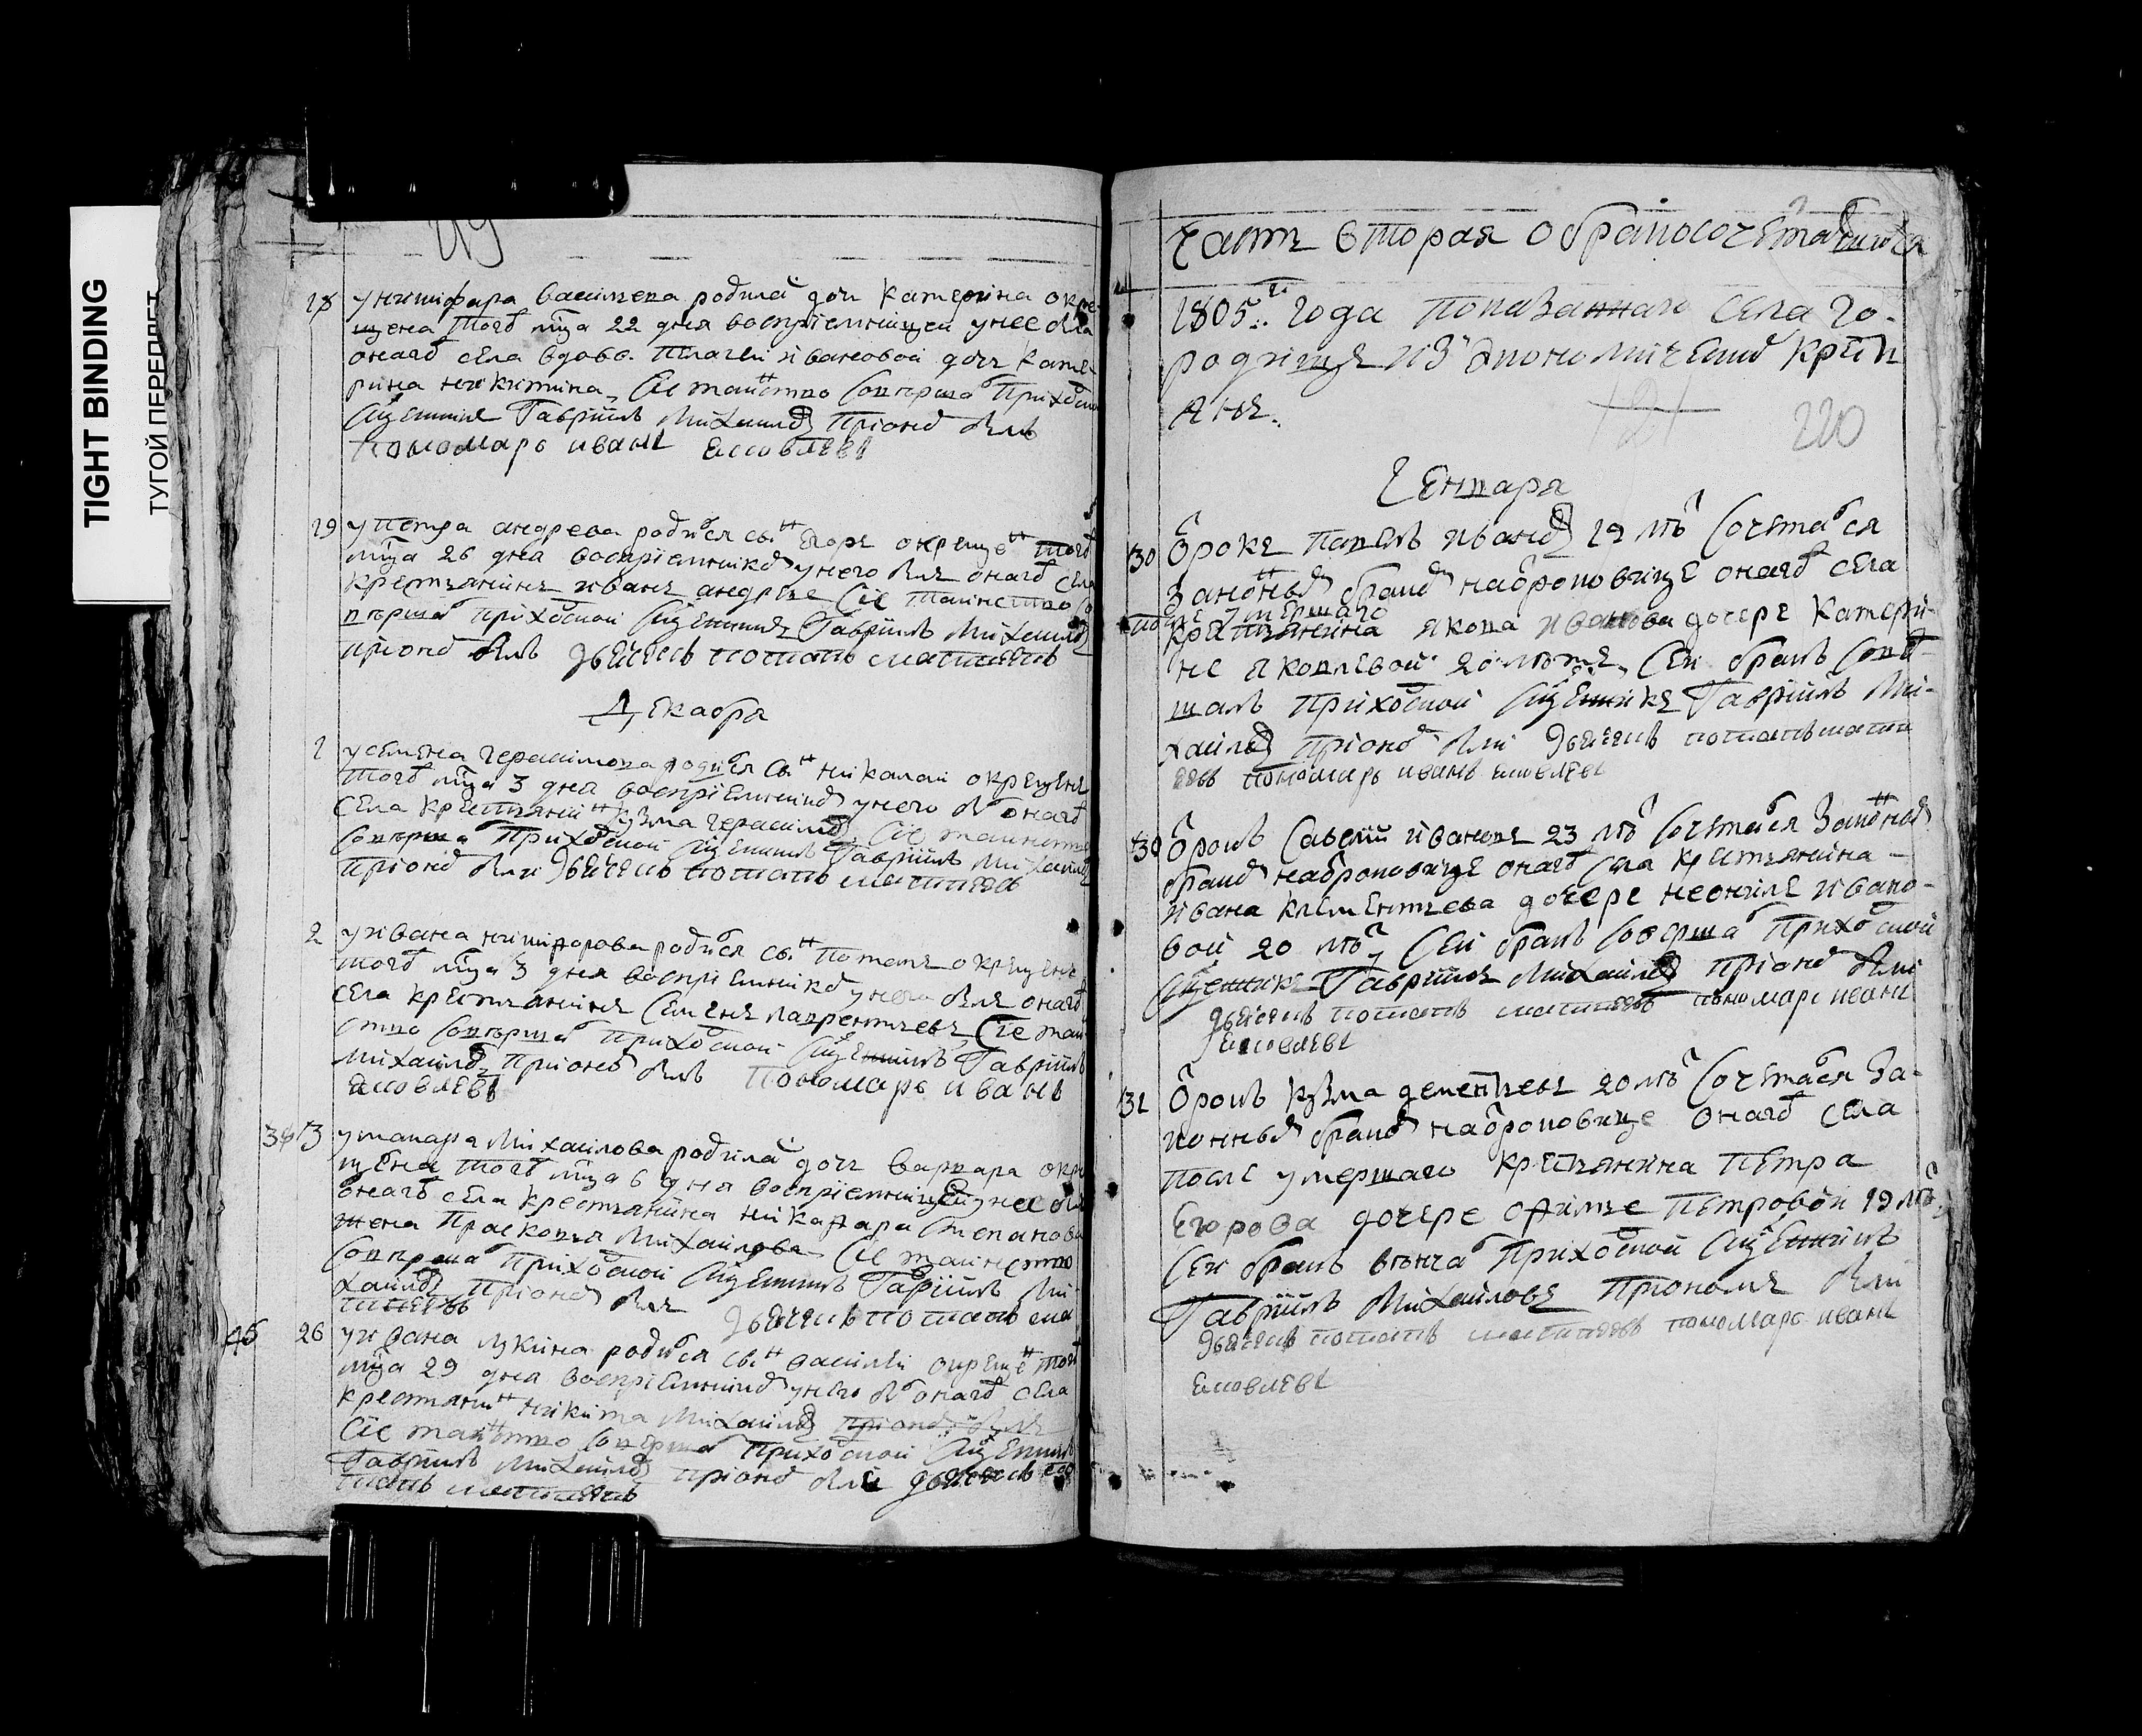 TIGHT BINDING
ТУГОЙ ПЕРЕПЛЕТ
18 у никифара василева родила дочь катерина окре-
щена того мца 22 дня восприемницей у нее была
онаго села вдовы пелагеи ивановой дочь кате-
рина никитина, сие таинство соверша приходской
сщенникъ Гавріилъ Михаиловъ при оном былъ
пономарь иванъ яковлевъ
19 у петра андреева родися сынъ егоръ окрещенъ того
мца 26 дня восприемникомъ у него былъ онаго села
крестьянинъ иванъ андреевъ сие таинство со
верша приходской сщенникъ Гавріилъ Михаиловъ
при оном былъ дьячекъ
Декабря
1 у семена герасимова родися сынъ николаи окрещенъ
того мца 3 дня восприемником у него бы онаго
села крестьянинъ кузма герасимовъ, сие таинство
соверша приходской сщенникъ Гавріилъ Михаиловъ
при оном были дьячекъ
2 у ивана родися сынъ потапъ окрещенъ
того мца 3 дня восприемником у него былъ онаго
села крестьянинъ семенъ лаврентьевъ, сие таин
ство соверша приходской сщенникъ Гавріилъ
Михаиловъ, при оном былъ пономарь иванъ
яковлевъ
3 у макара Михаилова родила дочь варвара окре
щена того мца 6 дня восприемницей у нее была
онаго села крестьянина никанара степанова
жена Прасковья Михаилова сие таинство
соверша приходской сщенникъ Гавріилъ Ми-
хаиловъ при оном былъ дьячекъ
26 у ивана лукина родися сынъ василеи окрещенъ того
мца 29 дня восприемником у него бы онаго села
крестьянинъ никита Михаиловъ при оном былъ
сие таинство соверша приходской сщенникъ
Гавріилъ Михаиловъ при оном были дьячекъ
часть вторая о бракосочетавшихся
1805го года показаннаго села го-
родища из экономическихъ крестъ
янъ.
121 220
Генваря
30 отрокъ павелъ ивановъ 19 летъ сочетася
законнымъ бракомъ на отроковице онаго села
после умершаго
крестьянина якова иванова дочере катери-
не яковлевой 20 летъ, сей бракъ совер-
шалъ приходской сщенникъ Гавріилъ Ми-
хаиловъ при оном были дьячекъ
пономарь иванъ яковлевъ
30 отрокъ савелий ивановъ 23 летъ сочетася законнымъ
бракомъ на отроковице онаго села крестьянина
ивана клементьева дочере неониле ивано-
вой 20 летъ, сей бракъ соверша приходской
сщенникъ Гавріилъ Михаиловъ при оном были
дьячекъ пономарь иванъ
яковлевъ
31 отрокъ кузма дементьевъ 20 летъ сочетася за-
коннымъ бракомъ на отроковице онаго села
после умершаго крестьянина петра
егорова дочере офимье петровой 19 летъ,
сей бракъ венча приходской сщенникъ
Гавріилъ Михаиловъ при ономъ были
дьячекъ пономарь иванъ
яковлевъ